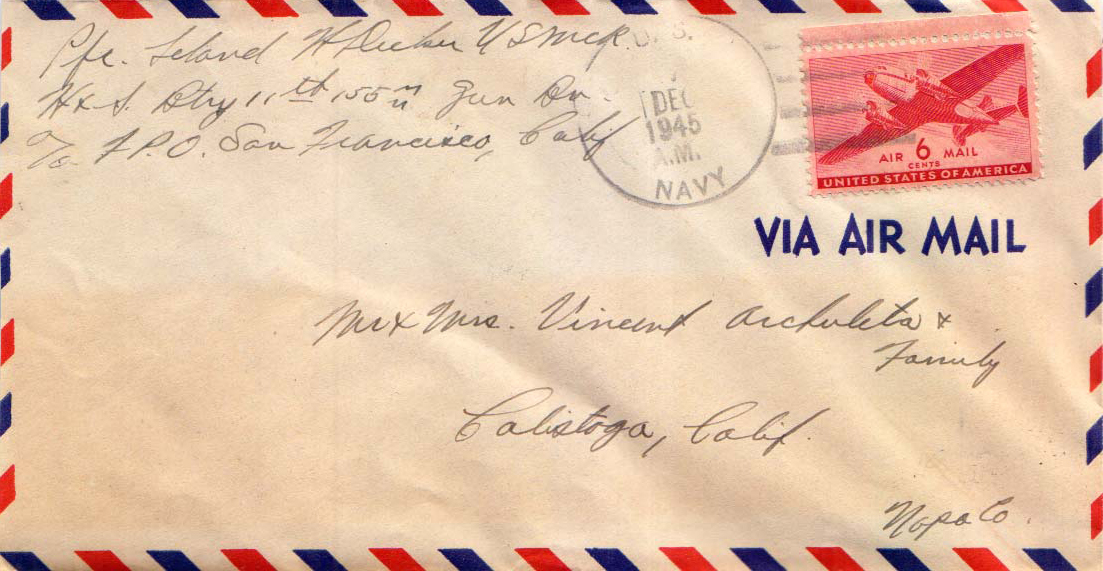 Pfc. Leland H Decker USMCR.
H & S. Btry 11th 155 m/m Gun Bn.
℅ F.P.O. San Francisco, Calif
U.S.
DEC
1945
A.M.
NAVY
AIR 6 MAIL
CENTS
UNITED STATES OF AMERICA
VIA AIR MAIL
Mr & Mrs. Vincent Archuleta &
Family
Calistoga, Calif.
Napa Co.